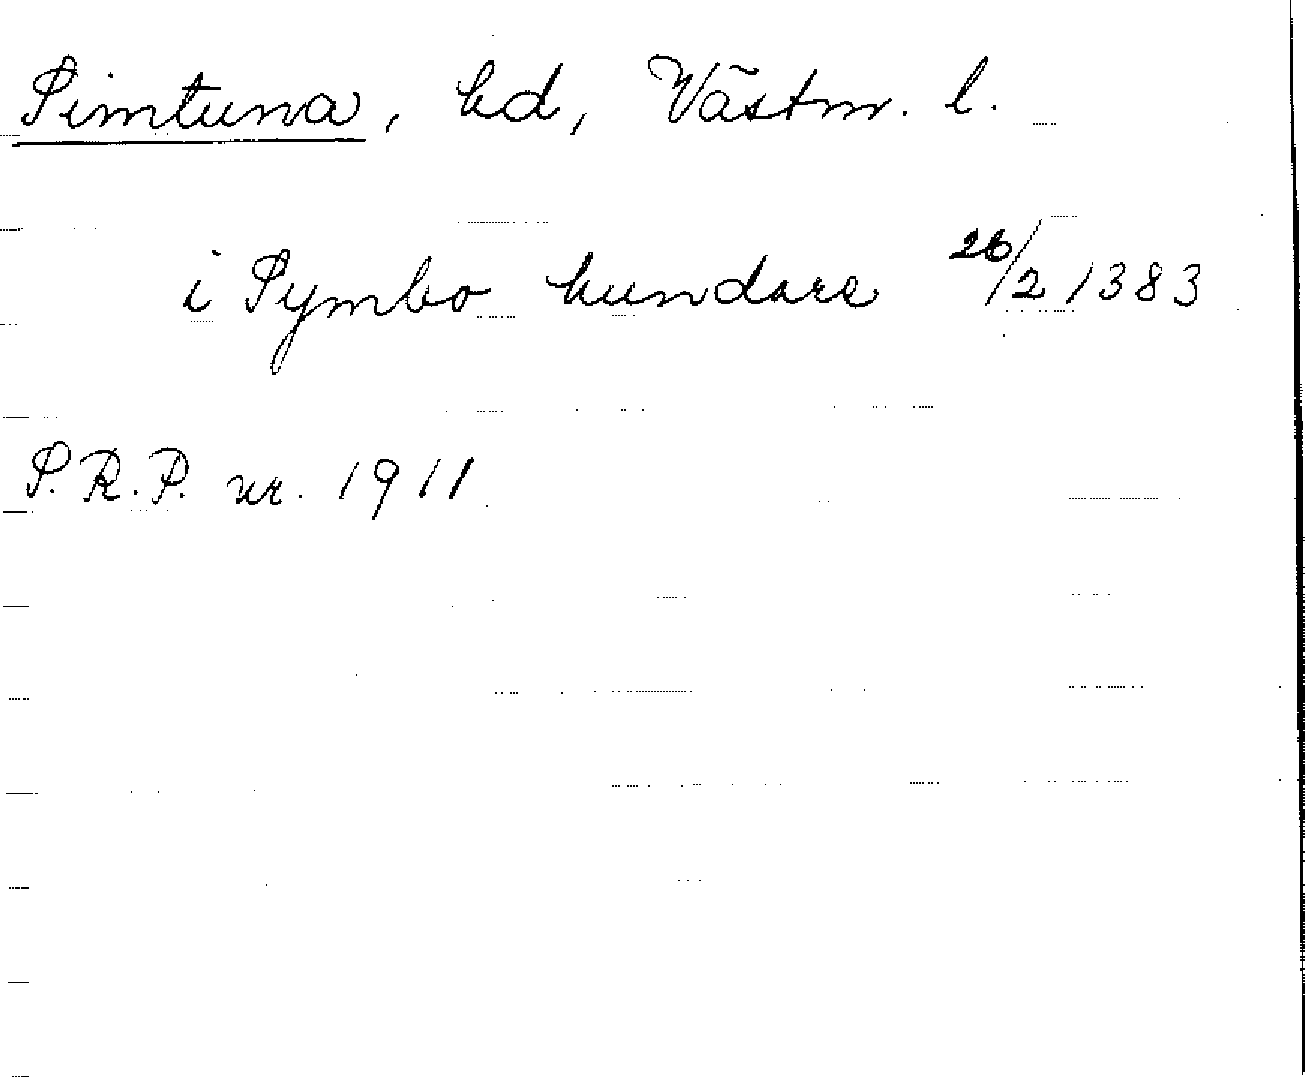 Simtuna, hd, Västm. l.
i Symbo hundare 26/2 1383
S.R.P. nr. 1911